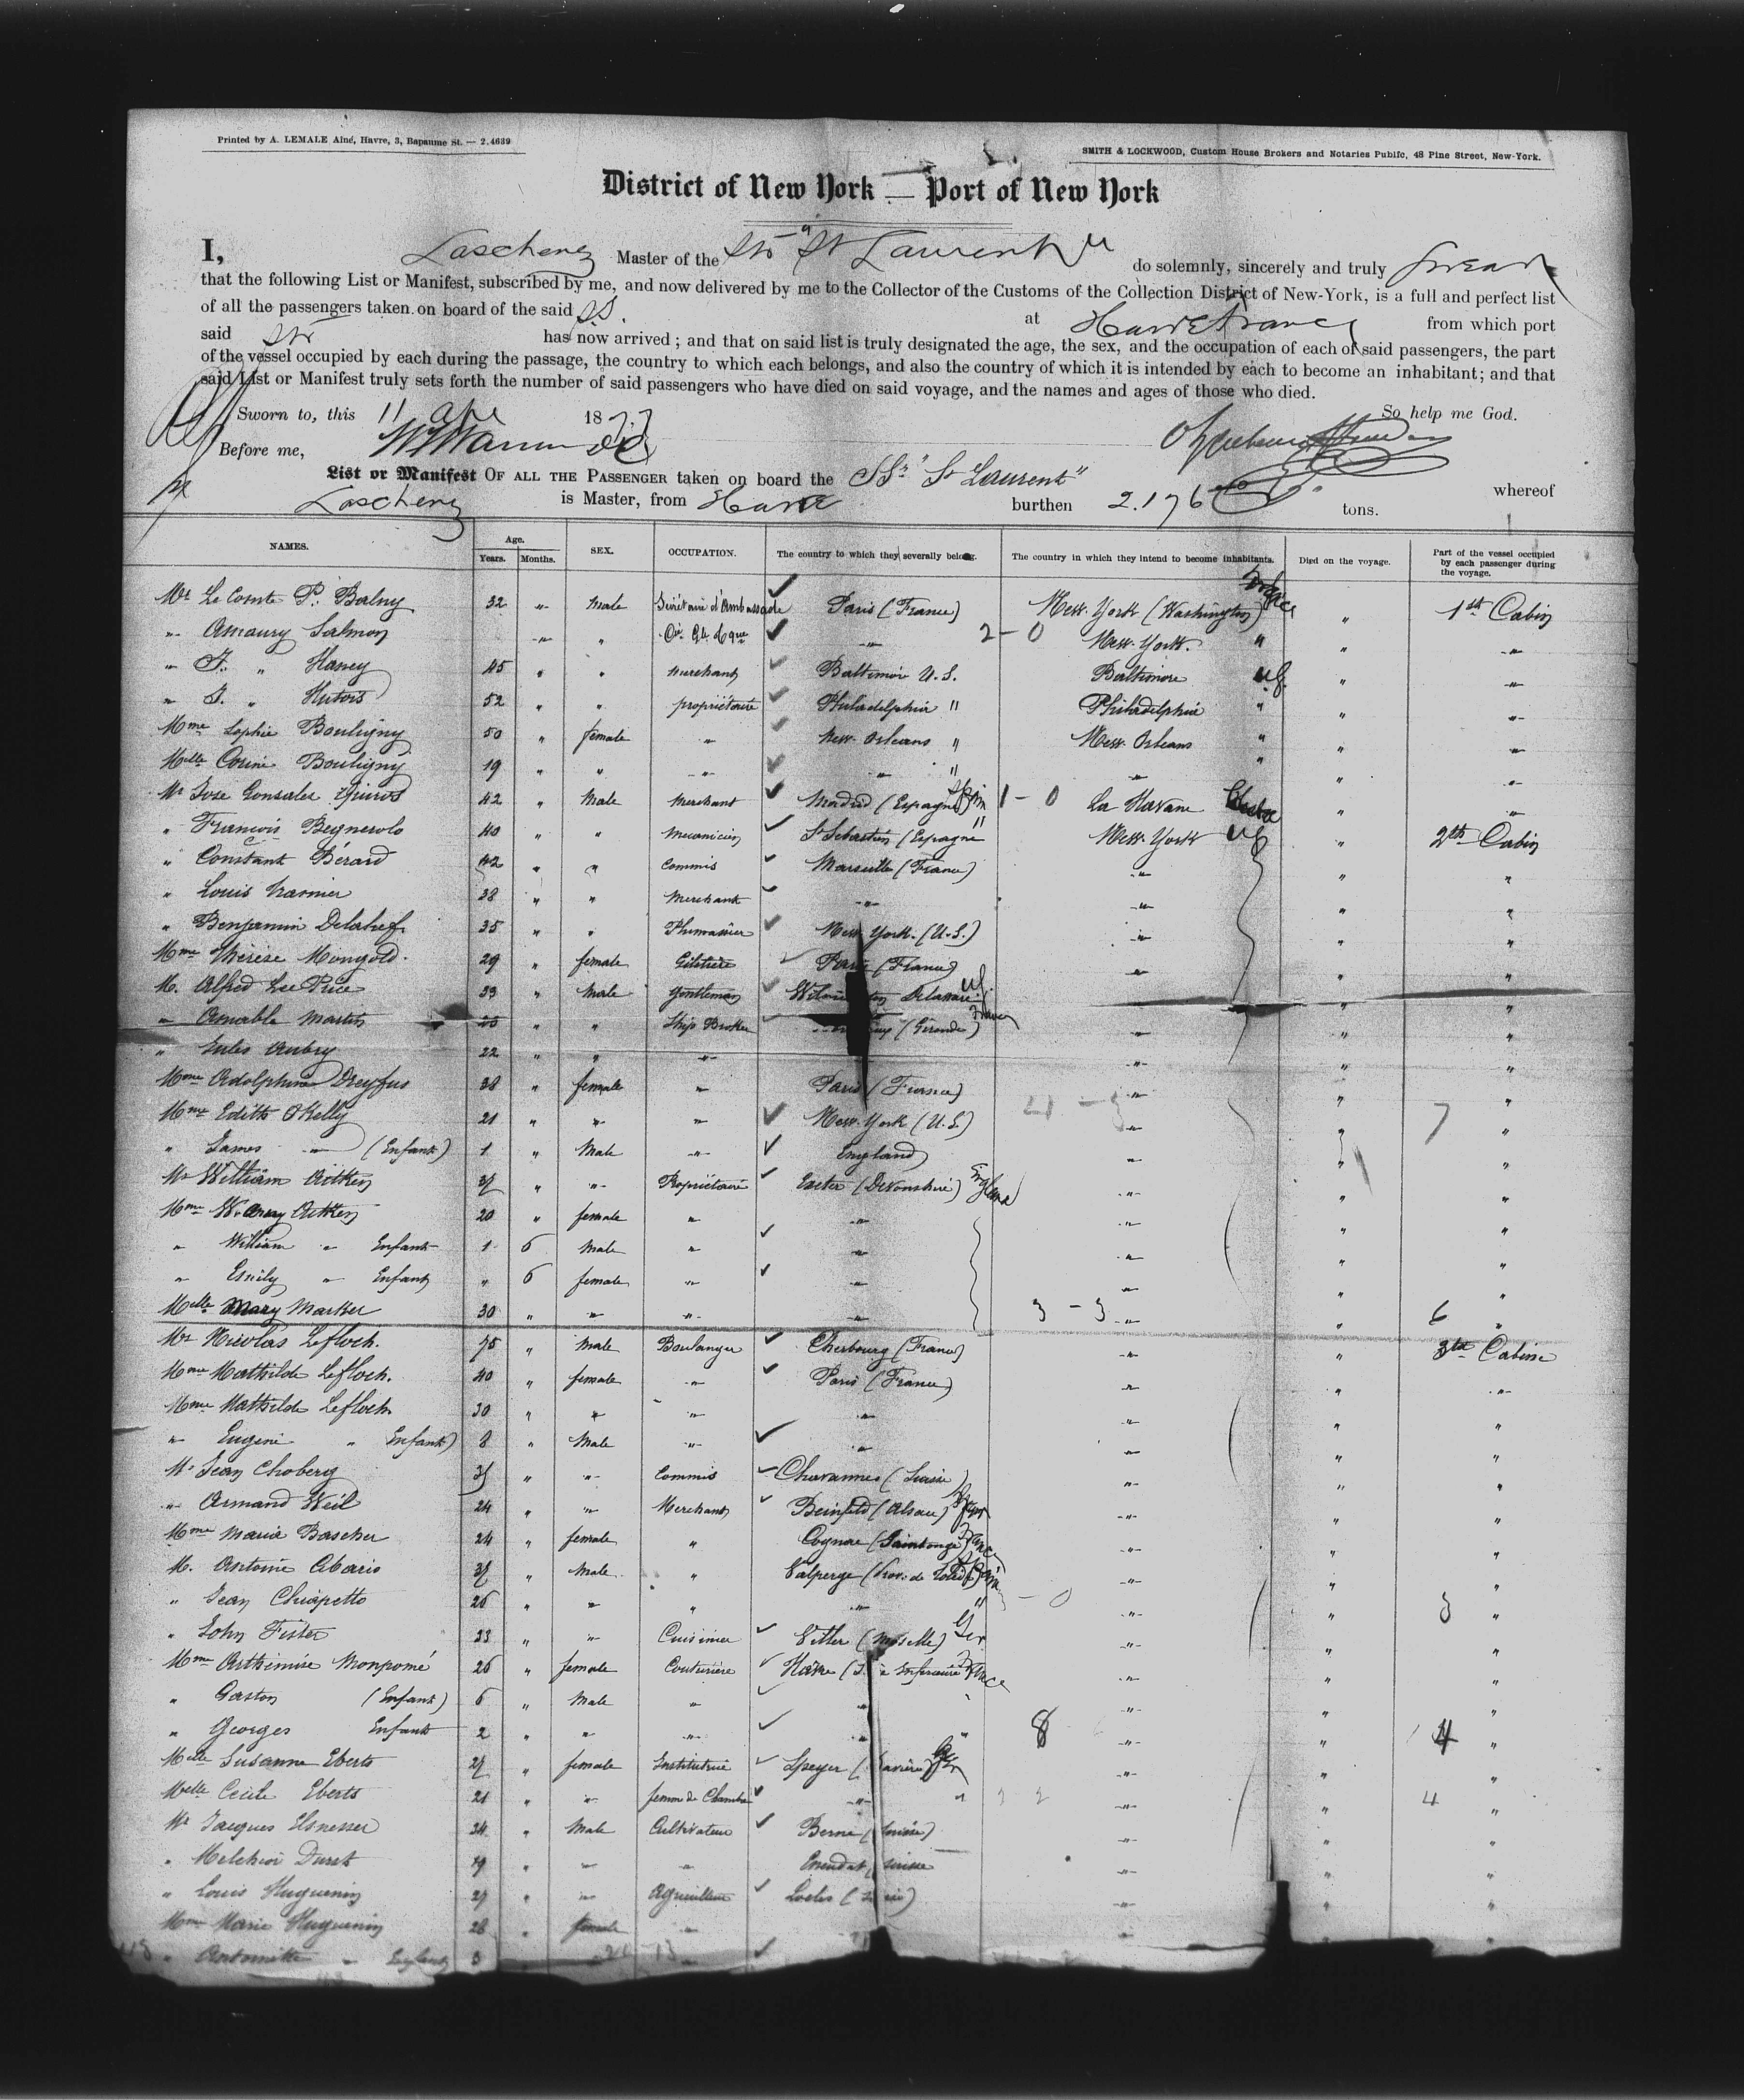 Printed by A. LEMALE Aîné, Havre, 3, Bapaume St. — 2.4639
SMITH & LOCKWOOD, Custom House Brokers and Notaries Public, 48 Pine Street, New-York.
District of New York — Port of New York
I, Master of the Str "St Laurent" do solemnly, sincerely and truly swear
that the following List or Manifest, subscribed by me, and now delivered by me to the Collector of the Customs of the Collection District of New-York, is a full and perfect list
of all the passengers taken on board of the said SS. at Havre France from which port
said Str has now arrived ; and that on said list is truly designated the age, the sex, and the occupation of each of said passengers, the part
of the vessel occupied by each during the passage, the country to which each belongs, and also the country of which it is intended by each to become an inhabitant; and that
said List or Manifest truly sets forth the number of said passengers who have died on said voyage, and the names and ages of those who died.
Sworn to, this 11 1877 So help me God.
Before me,
List or Manifest OF ALL THE PASSENGER taken on board the SSr "St Laurent" whereof
is Master, from Havre burthen 2.176 tons.
NAMES. Age. Years. Months. SEX. OCCUPATION. The country to which they severally belong. The country in which they intend to become inhabitants. Died on the voyage. Part of the vessel occupied by each passenger during the voyage.
Mr Le Comte P. Balny 32 " Male Secrétaire d'Ambassade Paris (France) New-York (Washington) France " 1st Cabin
" Amaury Salmon " " " 2-0 New-York. " " "
" F. " Haney 45 " " Merchant Baltimore U.S. Baltimore U.S. " "
" J. " Hutois 52 " " propriétaire Philadelphia " Philadelphia " " "
Mme Sophie Bouligny 50 " female " New-Orleans " New-Orleans " " "
Melle Corine Bouligny 19 " " " " " " " " "
Mr Jose Gonzales Quiros 42 " Male Merchant Madrid (Espagne) Spain 1-0 La Havane " "
" Francois Begnerolo 40 " " Mecanicien St Sebastien (Espagne " New-York US " 2th Cabin
" Constant Bérard 42 " " Commis Marseille (France) " " "
" Louis 38 " " Merchant " " " "
" Benjamin 35 " " New-York. (U.S.) " " "
Mme Thérèse Mongold. 29 " female Giletière Paris (France) " " "
M. Alfred Lee Price 33 " Male Gentleman Delaware US " "
" Amable Martin " " Ship Broker (Gironde) France " " "
" Jules Aubry 22 " " " " " "
Mme Adolphine Dreyfus 38 " female " Paris (France) " " "
Mme Edith O'Kelly 21 " " " New-York (U.S.) " " 7 "
" James " (Enfant) 1 " Male " England " " "
Mr William Aitken 37 " " Propriétaire Exeter (Devonshire) England " " "
Mme W. Aitken 20 " female " " " " "
" William " Enfant 1 6 Male " " " " "
" Emily " Enfant " 6 female " " " " "
Melle Mary Marker 30 " " " " 3-3 " " 6 "
Mr Nicolas Lefloch. 75 " Male Boulanger Cherbourg (France) " " 3th Cabine
Mme Mathilde Lefloch. 40 " female " Paris (France) " " "
Mme Mathilde Lefloch 30 " " " " " " "
" Eugene " Enfant) 8 " Male " " " " "
Mr Jean Choberg 35 " " Commis Chavannes (Suisse) " " "
" Armand Weil 24 " " Merchant Benfeld (Alsace) " " "
Mme Maria Bascher 24 " female " Cognac (Saintonge) France " " "
M. Antoine Abario 37 " Male " Valperge " " "
" Jean Chiapetto 26 " " " " " - 0 " " 3 "
" John Fister 33 " " Cuisinier (Moselle) Ger " " "
Mme Arthémise Monpomé 26 " female Couturière Havre Inférieure France " " "
" Gaston (Enfant) 6 " Male " " " " "
" Georges Enfant 2 " " " " " 8 " " 4 "
Melle Susanne Eberts 27 " female Institutrice Speyer (Bavière) Ger " " "
Melle Cecile Eberts 21 " " femme de Chambre " " 2 " " 4 "
Mr Jacques Elsnesser 34 " Male Cultivateur Berne (Suisse) " " "
" Melchior Durst " " " Suisse " " "
" Louis Huguenin 27 " " Agriculteur " " "
Mme Marie Huguenin 28 " female " " " "
" Antoinette " 3